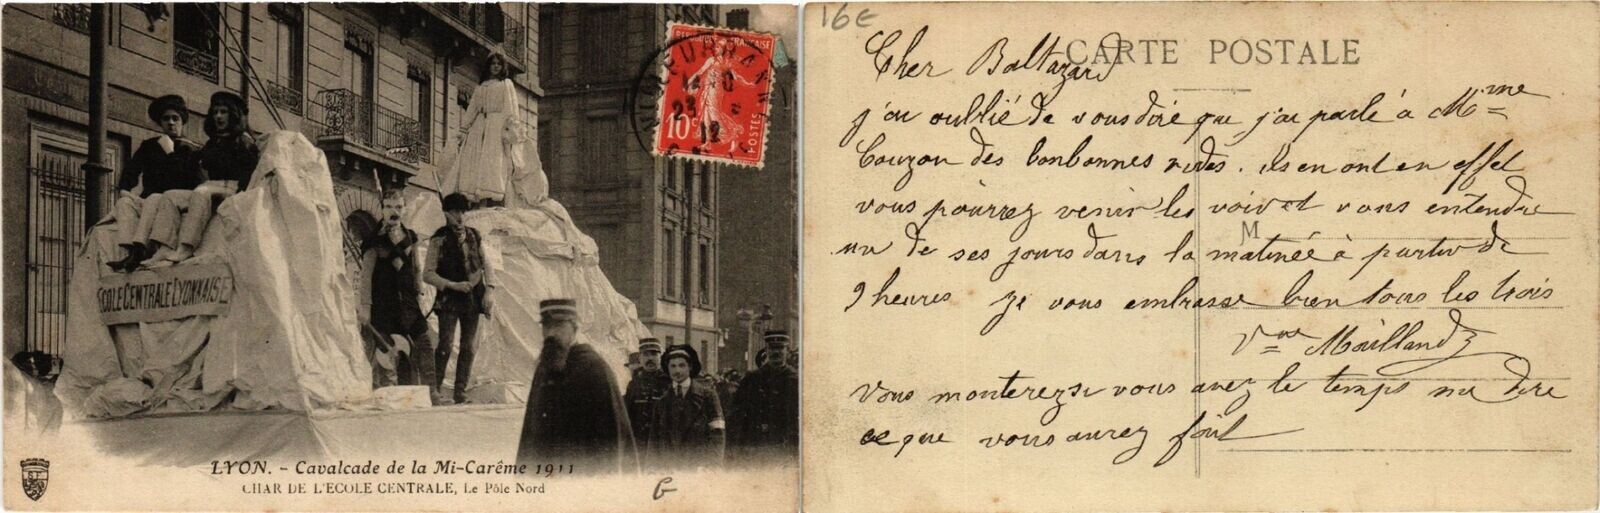 ECOLE CENTRALE LYONNAISE
REPUBLIQUE FRANÇAISE
10c
POSTES
23
12
LYON. - Cavalcade de la Mi-Carême 1911
CHAR DE L'ECOLE CENTRALE, Le Pôle Nord
G
16E
CARTE POSTALE
Cher Baltazard
j'ai oublié de vous dire que j'ai parlé à Mme
Couzon des bonbonnes vides. ils en ont en effet
vous pourrez venir les voir et vous entendre
M
un de ses jours dans la matinée à partir de
9 heures je vous embrasse bien tous les trois
Vve Mouilland
Vous monterez si vous avez le temps me dire
ce que vous aurez fait